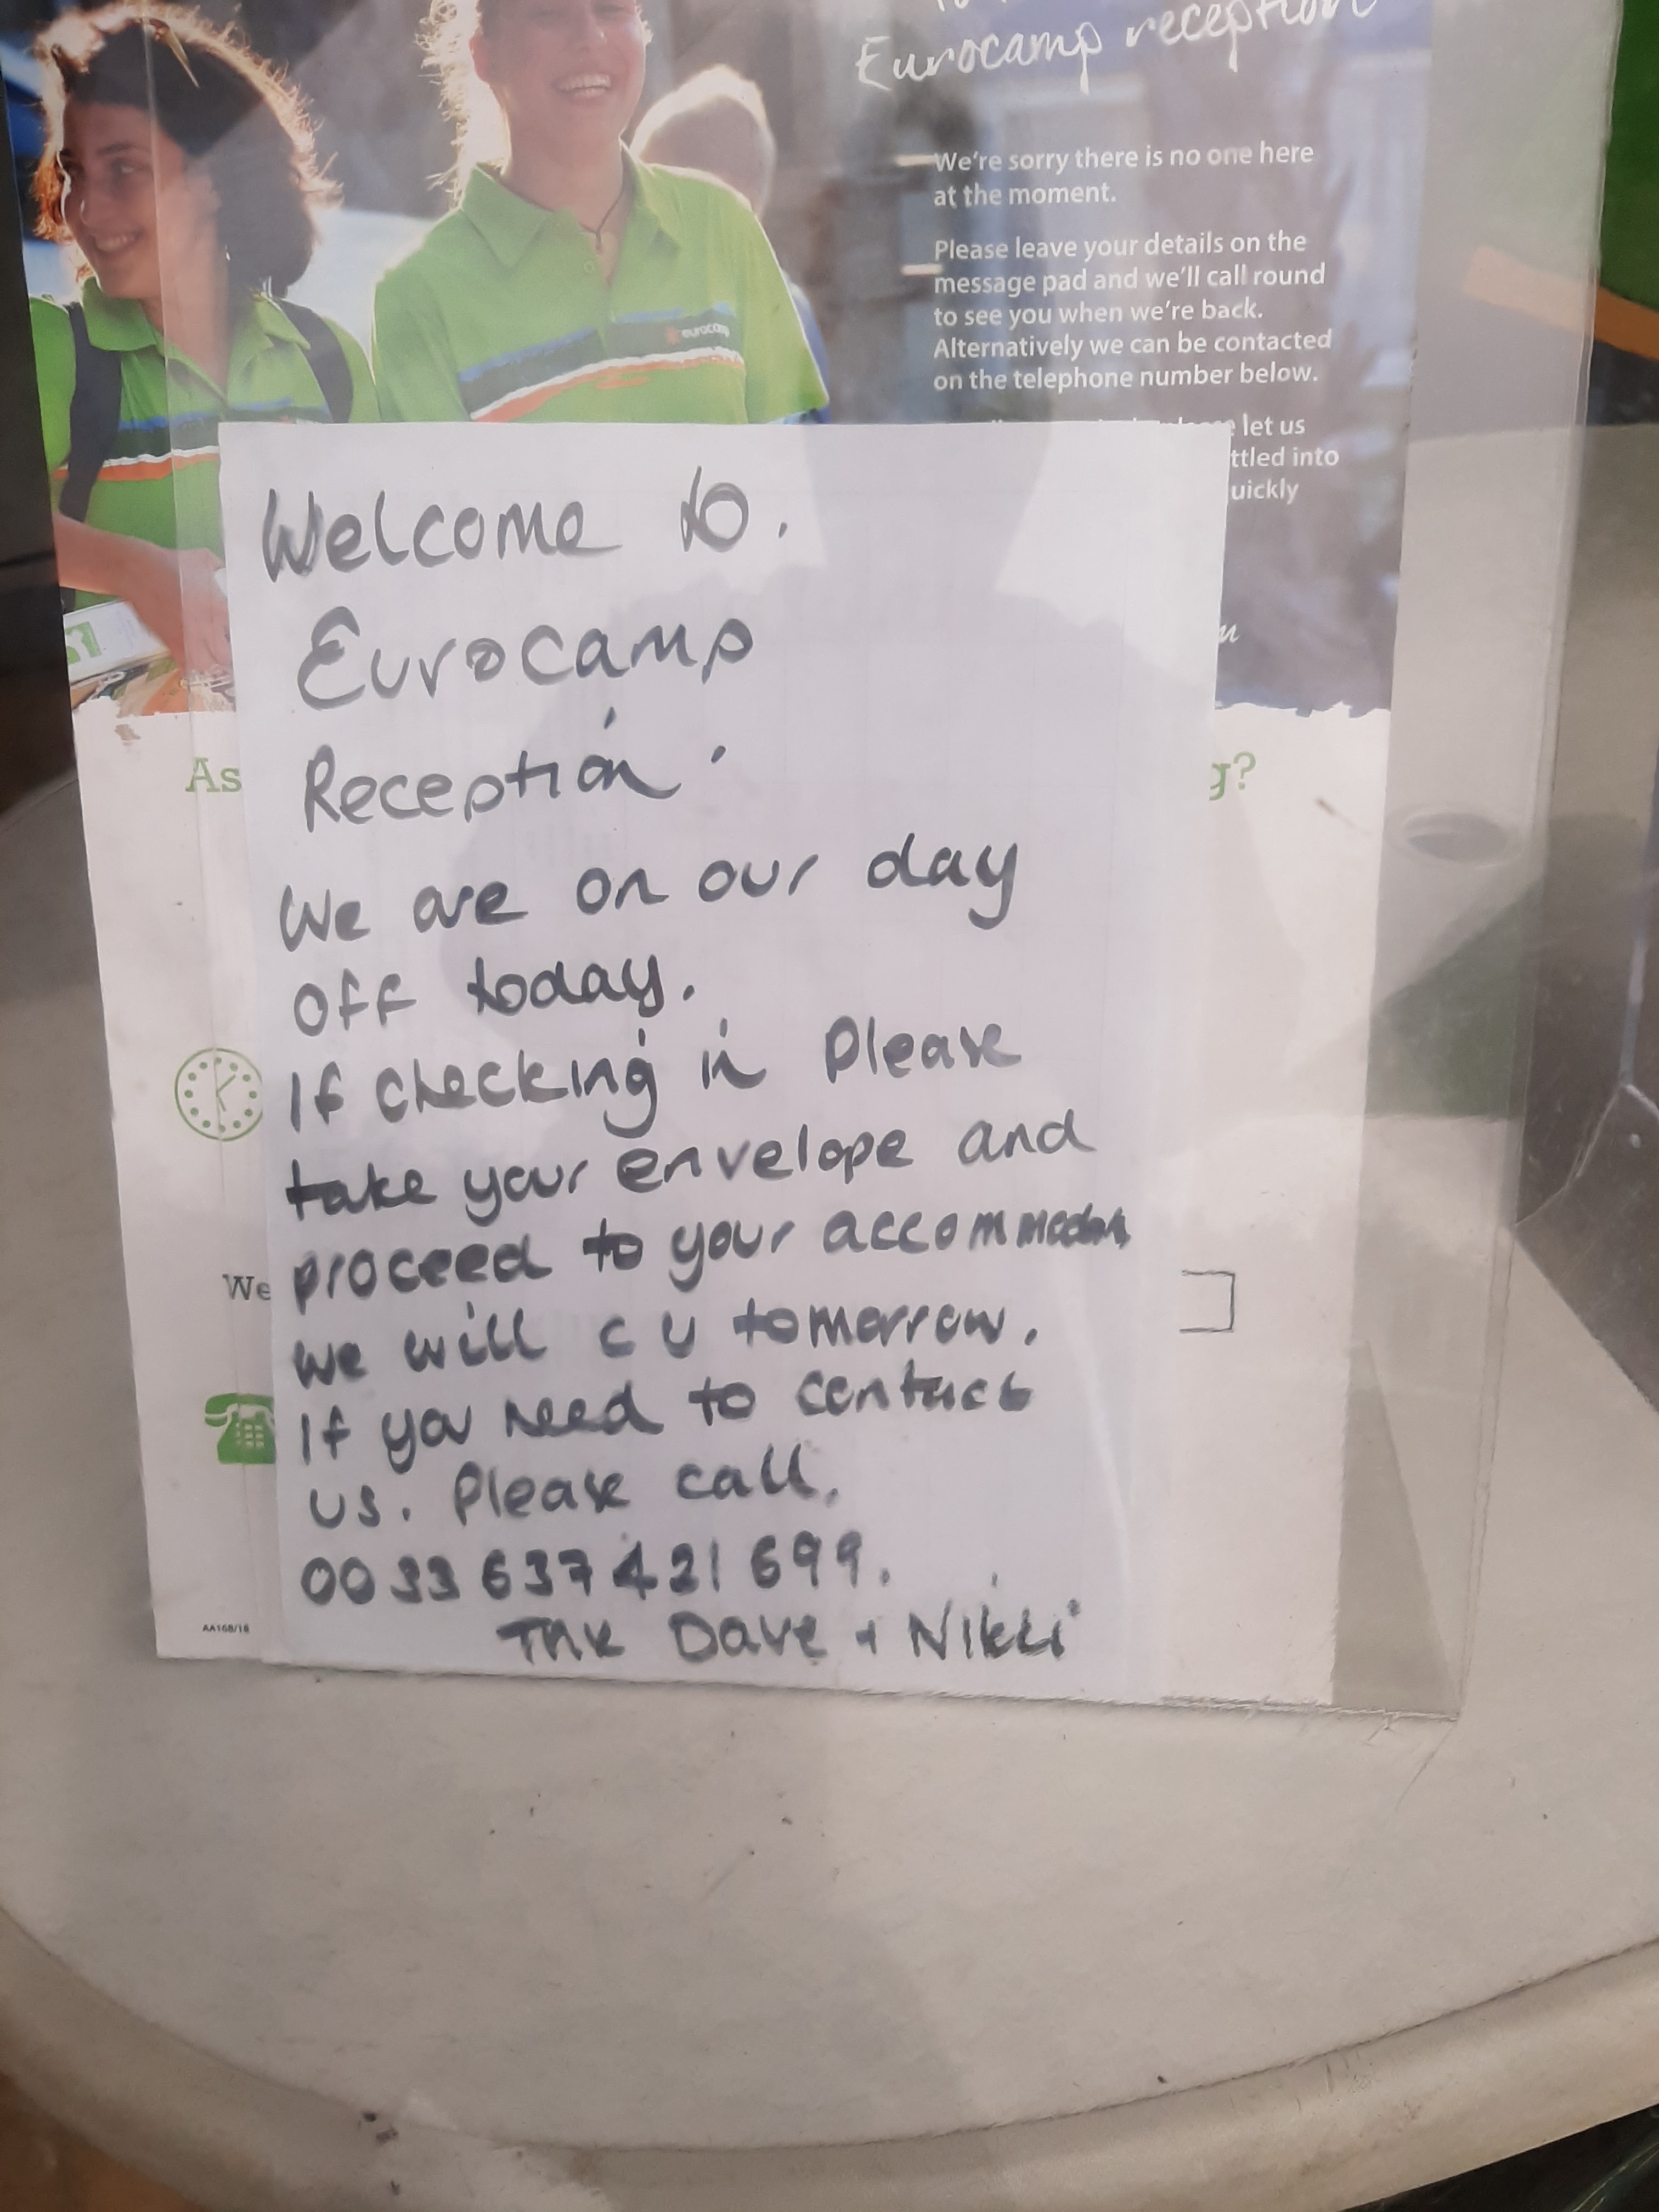 Eurocamp reception
eurocamp
We're sorry there is no one here
at the moment.
Please leave your details on the
message pad and we'll call round
to see you when we're back.
Alternatively we can be contacted
on the telephone number below.
let us
ttled into
uickly
Welcome to.
Eurocamp
Reception.
We are on our day
off today.
If checking in Please
take your envelope and
proceed to your
we will c u tomorrow.
If you need to contact
us. Please call.
0033 637 421 699.
Thx Dave + Nikki
As
g?
We
AA168/18